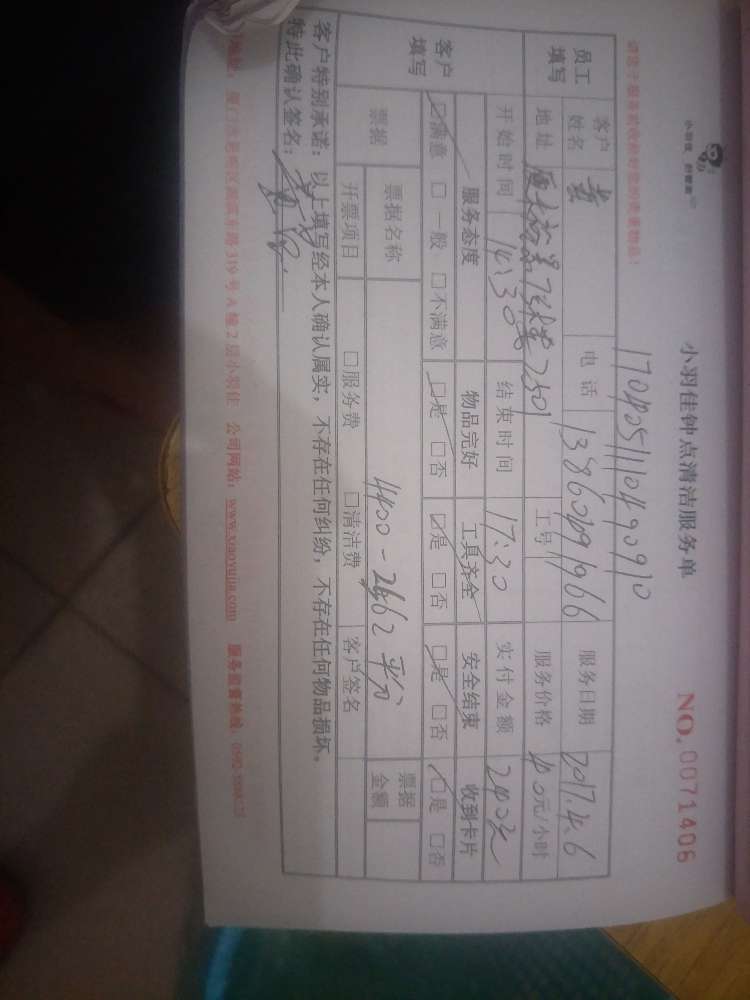 小羽佳钟点清洁服务单 NO.0071406
员工填写 客户姓名 黄 电话 13860491966 服务日期 2017.4.6
地址 工号 服务价格 40元/小时
开始时间 14:30 结束时间 17:30 实付金额 240元
客户填写 服务态度 物品完好 工具齐全 安全结束 收到卡片
☑满意 □一般 □不满意 ☑是 □否 ☑是 □否 ☑是 □否 ☑是 □否
票据 票据名称 票据金额
开票项目 □服务费 □清洁费 客户签名
客户特别承诺:以上填写经本人确认属实,不存在任何纠纷,不存在任何物品损坏。
特此确认签名:
319号A幢2层小羽佳 公司网站:www.xiaoyujia.com 服务监督热线: